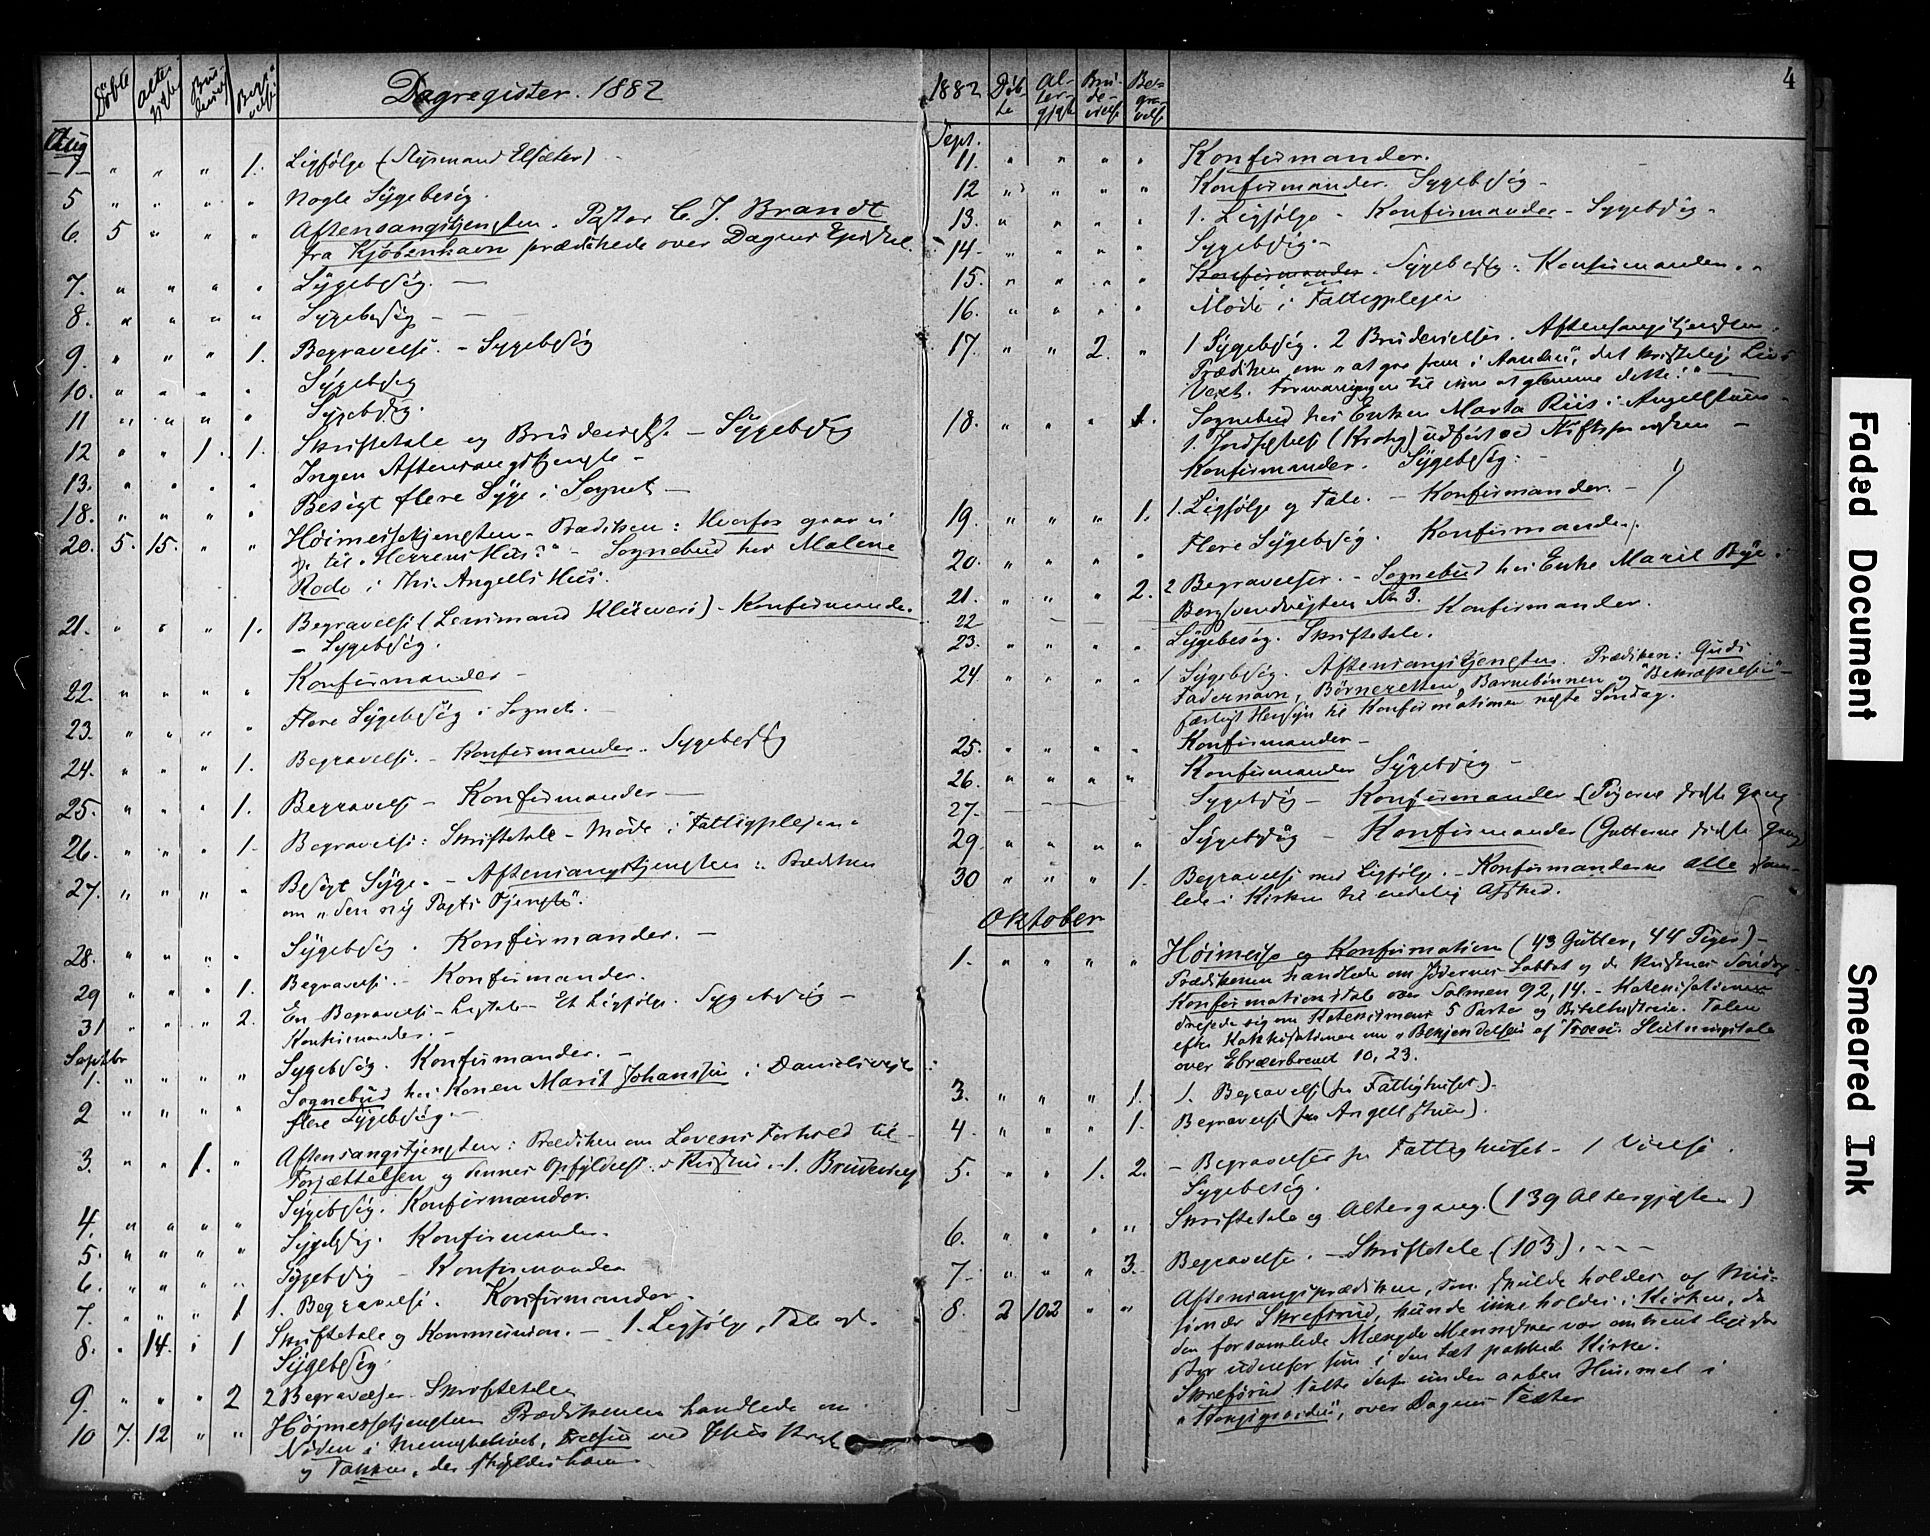 Døbte Alter- gjæste Brudevielse Begravelse Dagregister. 1882
Aug
1 " " " 1. Ligfølge (Styrmand Elsæter)
5 " " " " Nogle Sygebesøg.
6. 5 " " " Aftensangstjenesten. Pastor C. J. Brandt
fra Kjøbenhavn prædikede over Dagens Epistel.
7. " " " " Sygebesøg. —
8. " " " " Sygebesøg — —
9. " " " 1. Begravelse. – Sygebesøg
10. " " " " Sygebesøg
11 " " " " Sygebesøg.
12 " " 1. 1. Skriftetale og Brudevielse – Sygebesøg
13. " " " " Ingen Aftensangstjeneste –
18. " " " " Besøgt flere Syge i Sognet —
20. 5. 15. " " Høimessetjenesten – Prædiken: Hvorfor gaar vi
til "Herrens Hus?" – Sognebud hos Malene
Rode i Ths. Angells Hus.
21. " " " 1. Begravelse (Lensmand Klüwer) – Konfirmander.
– Sygebesøg.
22. " " " " Konfirmander –
23. " " " " Flere Sygebesøg i Sognet. –
24. " " " 1. Begravelse. – Konfirmander. Sygebesøg
25. " " " 1. Begravelse – Konfirmander —
26. " " " 1. Begravelse: Skriftetale – Møde i Fattigplejen.
27. " " " " Besøgt Syge. – Aftensangstjenesten: Prædiken
om "den ny Pagts Tjeneste".
28. " " " " Sygebesøg. Konfirmander. –
29 " " " 1. Begravelse. – Konfirmander.
31 " " " 2. En Begravelse – Et Ligfølge. Sygebesøg –
Konfirmander. –
Septbr
1. " " " " Sygebesøg. Konfirmander. –
2 " " " " Sognebud hos Konen Marit Johanssen i Danielsveit.
flere Sygebesøg. –
3. " " 1. " Aftensangstjenesten: Prædiken om Lovens Forhold til
Forjættelsen og dennes Opfyldelse i Kristus. – 1. Brudevielse
4. " " " " Sygebesøg. Konfirmander.
5. " " " " Sygebesøg. Konfirmander.
6. " " " " Sygebesøg – Konfirmander
7. " " " 1 1. Begravelse. Konfirmander.
8. " 14. " 1 Skriftetale og Kommunion. – 1. Ligfølge, Tale og
Sygebesøg
9. " " " 2 2 Begravelser. Skriftetale
10 7. 12 " " Højmessetjenesten Prædikenen handlede om
Nøden i Menneskelivet, Frelsen ved Jesus Krist
og Takken, der skyldes ham.
4
1882 Døbte Altergjæste Brudevielse Begravelse
Sept.
11. " " " " Konfirmander.
12 " " " " Konfirmander. Sygebesøg –
13. " " " " 1. Ligfølge – Konfirmander – Sygebesøg –
14. " " " " Sygebesøg. –
15. " " " " Konfirmander. Sygebesøg. Konfirmander.
16. " " " " Møde i Fattigplejen
17. " " 2. " 1 Sygebesøg. 2 Brudevielser. Aftensangstjenesten.
Prædiken om "at gaa frem i Aanden", det kristelig Livs
Vext. Formaningen til ikke at glemme dette." —
18. " " " 1. Sognebud hos Enken Marta Riis i Angellstuen –
1. Jordfæstelse (Krohg) udført ved Stiftsprovsten –
Konfirmander. Sygebesøg. –
19. " " " 1. 1. Ligfølge og Tale. – Konfirmander. –
20. " " " " Flere Sygebesøg. Konfirmander.
21. " " " 2. 2 Begravelser. – Sognebud hos Enke Marit Bye i
Bergsvendvejten No 3. Konfirmander.
22
23. " " " " Sygebesøg. Skriftetale.
24. " " " " 1 Sygebesøg. Aftensangstjenesten. Prædiken: Guds
Fadernavn, Børneretten, Barnebønnen og "Bekræftelsen" –
særligt Hensyn til Konfirmationen næste Søndag.
25. " " " " Konfirmander –
26. " " " " Konfirmander Sygebesøg –
27. – – – Sygebesøg – Konfirmander (Pigerne sidste Gang
29. " " " " Sygebesøg – Konfirmander (Gutterne sidste Gang
30 " " " 1. Begravelse med Ligfølge. – Konfirmanderne alle sam-
lede i Kirken til endelig Afsked.
Oktober
1. " " " " Høimesse og Konfirmation (43 Gutter, 44 Piger) –
Prædikenen handlede om Jødernes Sabbat og de Kristnes Søndag.
Konfirmationstale over Salmen 92,14. – Katekisationen
drejede sig om Katekismens 5 Parter og Bibelhistorie. Talen
efter Katekisationen om "Bekjendelsen af Troen". Slutningstale
over Ebræerbrevet 10,23.
3. " " " 1. 1. Begravelse (fra Fattighuset).
4. " " " 1. Begravelse (fra Angellstuen).
5. " " 1. 2. – Begravelser fra Fattighuset – 1 Vielse.
Sygebesøg.
6. " " " " Skriftetale og Altergang. (139 Altergjæster)
7. " " " 3. Begravelse. – Skriftetale (103). – – –
8. 2 102 " " Aftensangsprædiken, som skulde holdes af Mis-
sionær Skrefsrud, kunde ikke holdes i Kirken, da
den forsamlede Mængde Mennesker var omtrent lige saa
stor udenfor som i den tæt pakkede Kirke.
Skrefsrud talte derfor under aaben Himmel i
"Kongsgaarden", over Dagens Texter
Faded Document
Smeared Ink